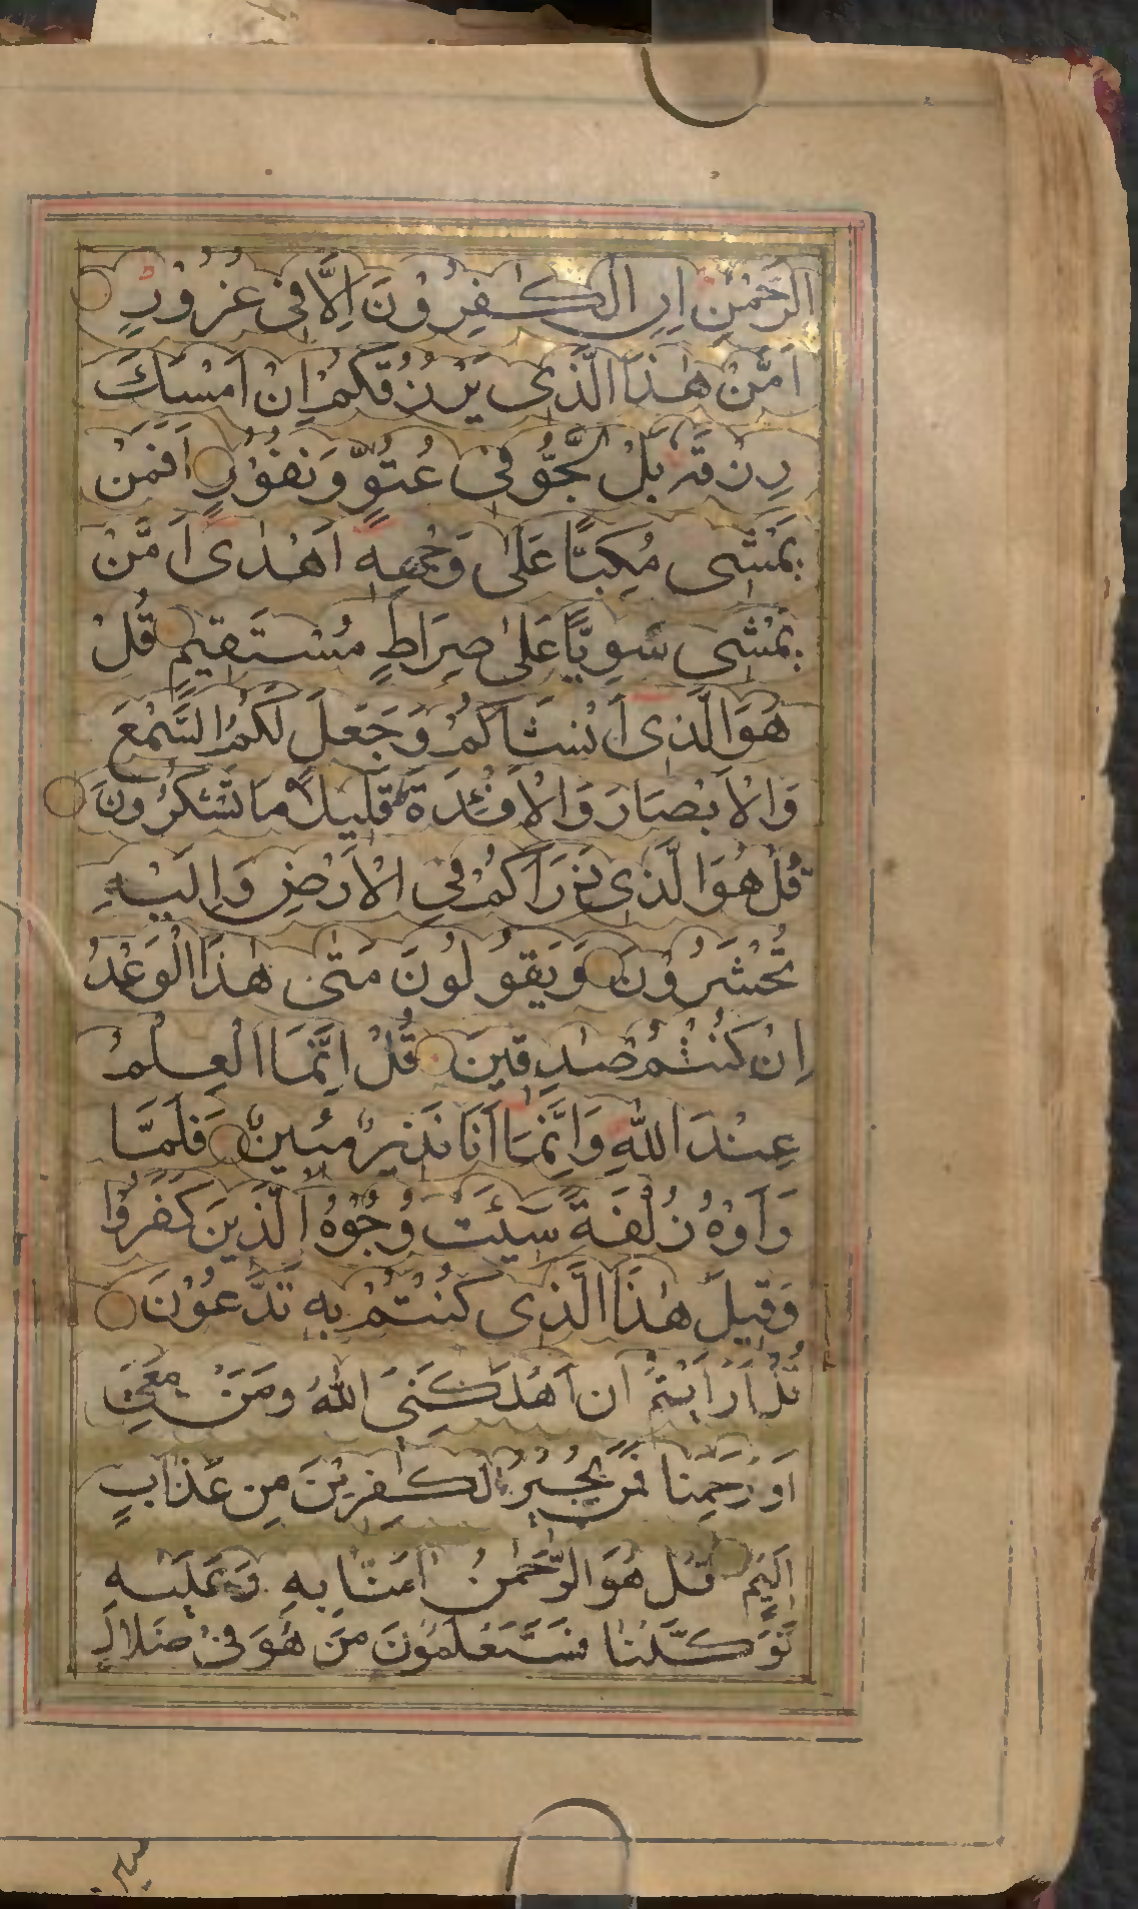 الرَّحْمٰنِ اِنِ الْكٰفِرُوْنَ اِلَّا فِىْ غُرُوْرٍ
اَمَّنْ هٰذَا الَّذِى يَرْزُقُكُمْ اِنْ اَمْسَكَ
رِزْقَهٗ بَلْ لَجُّوْ فِىْ عُتُوٍّ وَنُفُوْرٍ اَفَمَنْ
يَمْشِى مُكِبًّا عَلٰى وَجْهِهٖ اَهْدٰى اَمَّنْ
يَمْشِى سَوِيًّا عَلٰى صِرَاطٍ مُسْتَقِيمٍ قُلْ
هُوَ الَّذِى اَنْشَاَكُمْ وَجَعَلَ لَكُمُ السَّمْعَ
وَالْاَبْصَارَ وَالْاَفْئِدَةَ قَلِيلًا مَا تَشْكُرُونَ
قُلْ هُوَ الَّذِى ذَرَاَكُمْ فِى الْاَرْضِ وَاِلَيْهِ
تُحْشَرُوْنَ وَيَقُولُونَ مَتٰى هٰذَا الْوَعْدُ
اِنْ كُنْتُمْ صٰدِقِينَ قُلْ اِنَّمَا الْعِلْمُ
عِنْدَ اللّٰهِ وَاِنَّمَا اَنَا نَذِيرٌ مُبِينٌ فَلَمَّا
رَاَوْهُ زُلْفَةً سِيْئَتْ وُجُوْهُ الَّذِينَ كَفَرُوْا
وَقِيلَ هٰذَا الَّذِى كُنْتُمْ بِهٖ تَدَّعُوْنَ
قُلْ اَرَاَيْتُمْ اِنْ اَهْلَكَنِىَ اللّٰهُ وَمَنْ مَعِىَ
اَوْ رَحِمَنَا فَمَنْ يُجِيْرُ الْكٰفِرِيْنَ مِنْ عَذَابٍ
اَلِيْمٍ قُلْ هُوَ الرَّحْمٰنُ اٰمَنَّا بِهٖ وَعَلَيْهِ
تَوَكَّلْنَا فَسَتَعْلَمُوْنَ مَنْ هُوَ فِىْ ضَلَالٍ